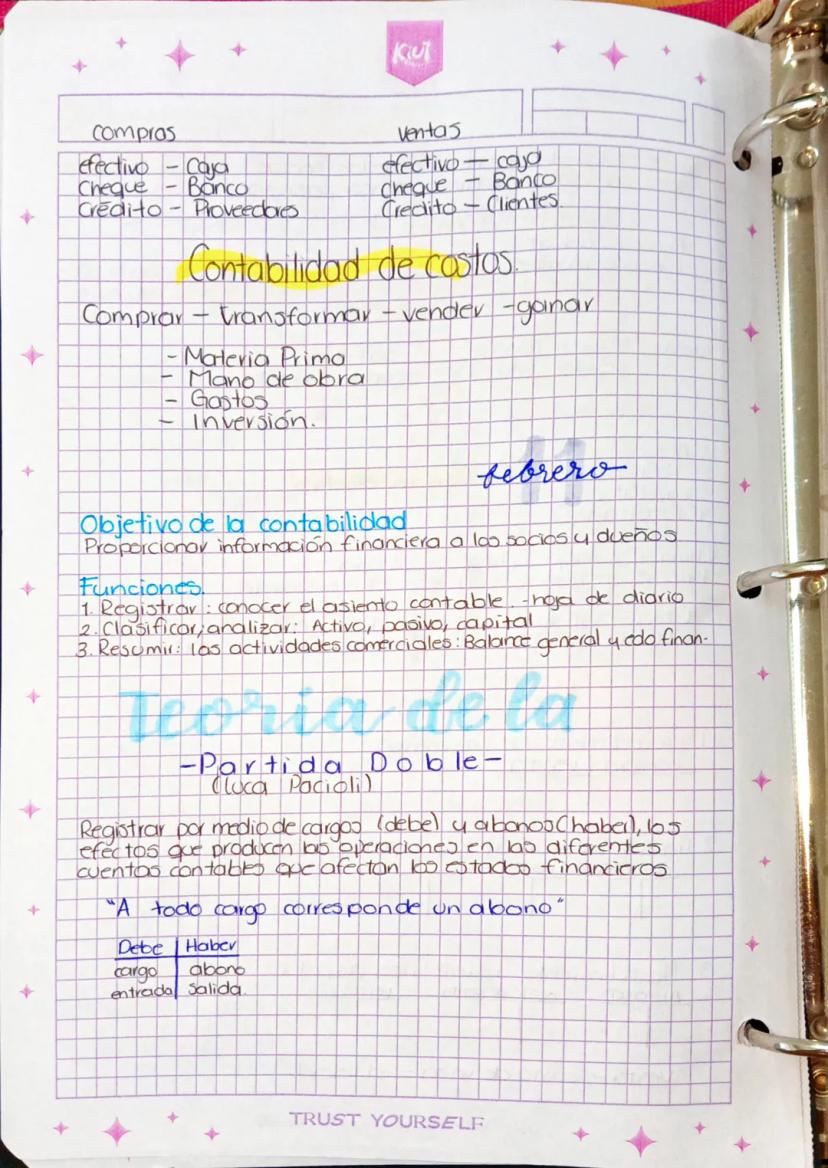 Kiut
compras ventas
efectivo - Caja efectivo - caja
Cheque - Banco cheque - Banco
Crédito - Proveedores Credito - Clientes.
Contabilidad de costos.
Comprar - transformar - vender - ganar
- Materia Prima
- Mano de obra
- Gastos
- Inversión.
11
febrero
Objetivo de la contabilidad
Proporcionar información financiera a los socios y dueños
Funciones.
1. Registrar: conocer el asiento contable. - hoja de diario
2. Clasificar, analizar: Activo, pasivo, capital
3. Resumir: las actividades comerciales: Balance general y edo finan.
Teoría de la
- Partida Doble -
(Luca Pacioli)
Registrar por medio de cargos (debe) y abonos (haber), los
efectos que producen las operaciones en las diferentes
cuentas contables que afectan los estados financieros
"A todo cargo corresponde un abono"
Debe | Haber
cargo | abono
entrada | salida.
TRUST YOURSELF